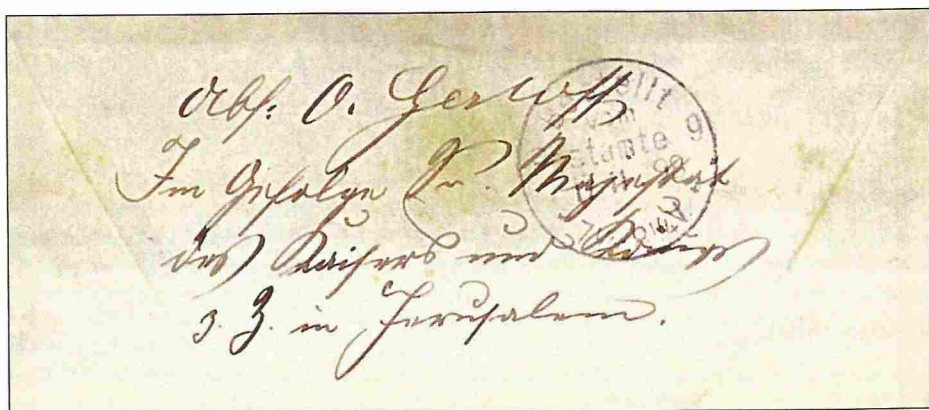 Abs: O. Gerloff
Im Gefolge Sr. Majestät
des Kaisers und Königs
z. Z. in Jerusalem.
ellt
vom
stamte 9
98